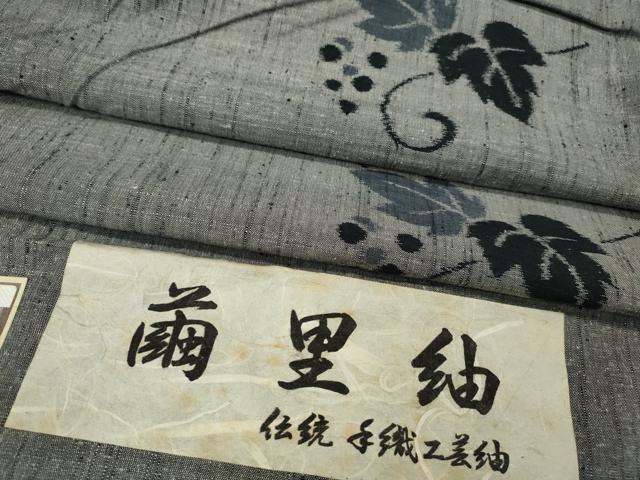 繭里紬
伝統 手織工芸紬